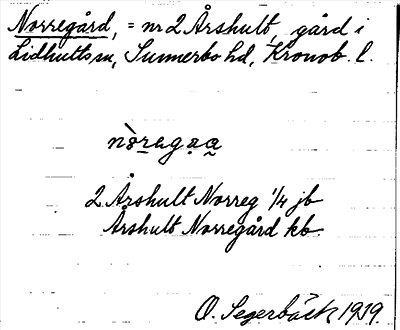 Norregård, = nr 2 Årshult, gård i
Lidhults sn, Sunnerbo hd, Kronob. l.
2 Årshult Norreg 1/4 jb
Årshult Norregård kb.
O. Segerbäck 1919.